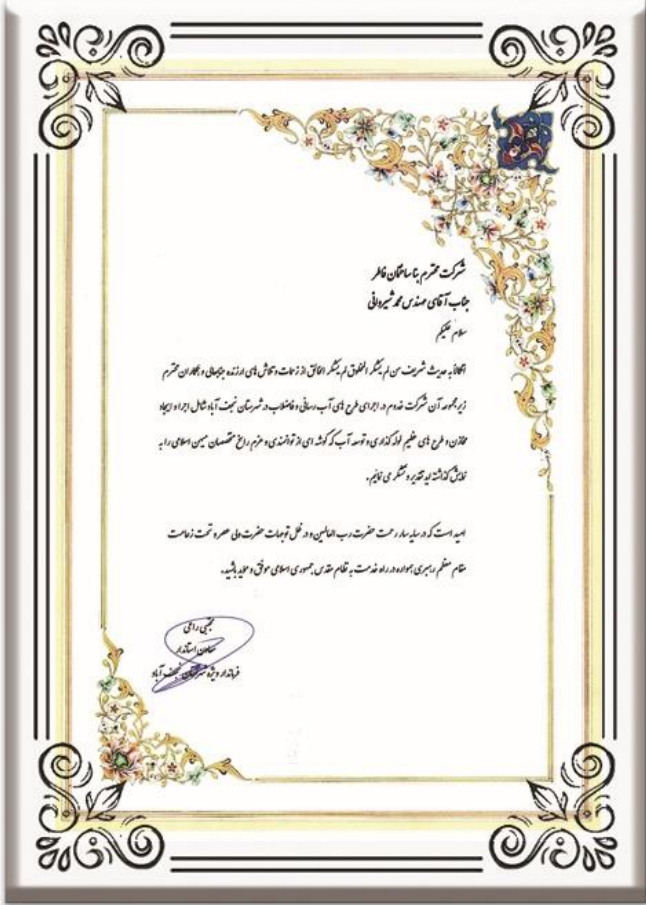 شرکت محترم بناساختمان فاطر
جناب آقای مهندس محمد شیروانی
سلام علیکم
اتکالاً به حدیث شریف من لم یشکر المخلوق لم یشکر الخالق از زحمات و تلاش های ارزنده جنابعالی و همکاران محترم
زیرمجموعه آن شرکت خدوم در اجرای طرح های آب رسانی و فاضلاب در شهرستان نجف آباد شامل اجرا و ایجاد
مخازن و طرح های عظیم لوله گذاری و توسعه آب که گوشه ای از توانمندی و عزم راسخ متخصصان میهن اسلامی را به
نمایش گذاشته اید تقدیر و تشکر می نمایم.
امید است که در سایه سار رحمت حضرت رب العالمین و در ظل توجهات حضرت ولی عصر و تحت زعامت
مقام معظم رهبری همواره در راه خدمت به نظام مقدس جمهوری اسلامی موفق و موید باشید.
مجتبی راعی
معاون استاندار
فرماندار ویژه شهرستان نجف آباد